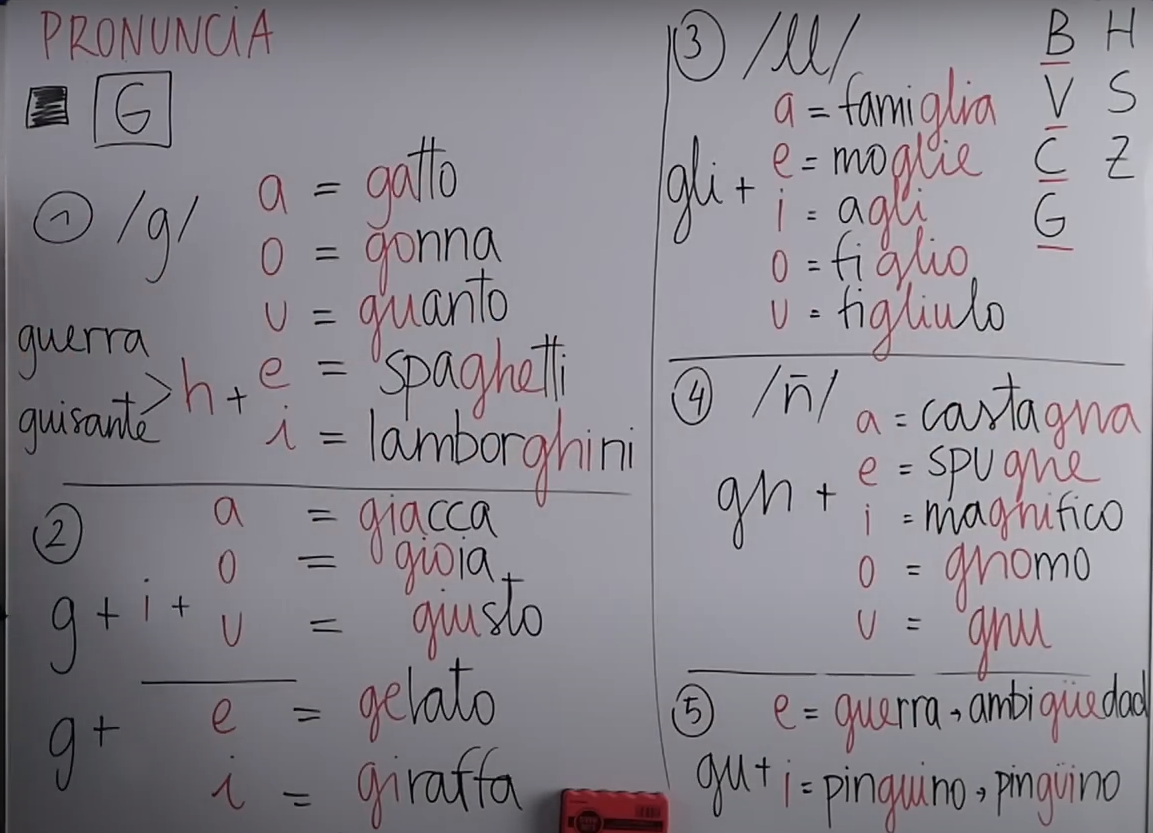 PRONUNCIA
G
1 /g/
a = gatto
o = gonna
u = quanto
guerra
guisante > h +
e = spaghetti
i = lamborghini
2
g + i +
a = giacca
o = gioia
u = giusto
g +
e = gelato
i = giraffa
3 /ll/
gli +
a = famiglia
e = moglie
i = agli
o = figlio
u = figliulo
B H
V S
C Z
G
4 /n̄/
gn +
a = castagna
e = spugne
i = magnifico
o = gnomo
u = gnu
5
gu +
e = guerra → ambigüedad
i = pinguino → pingüino